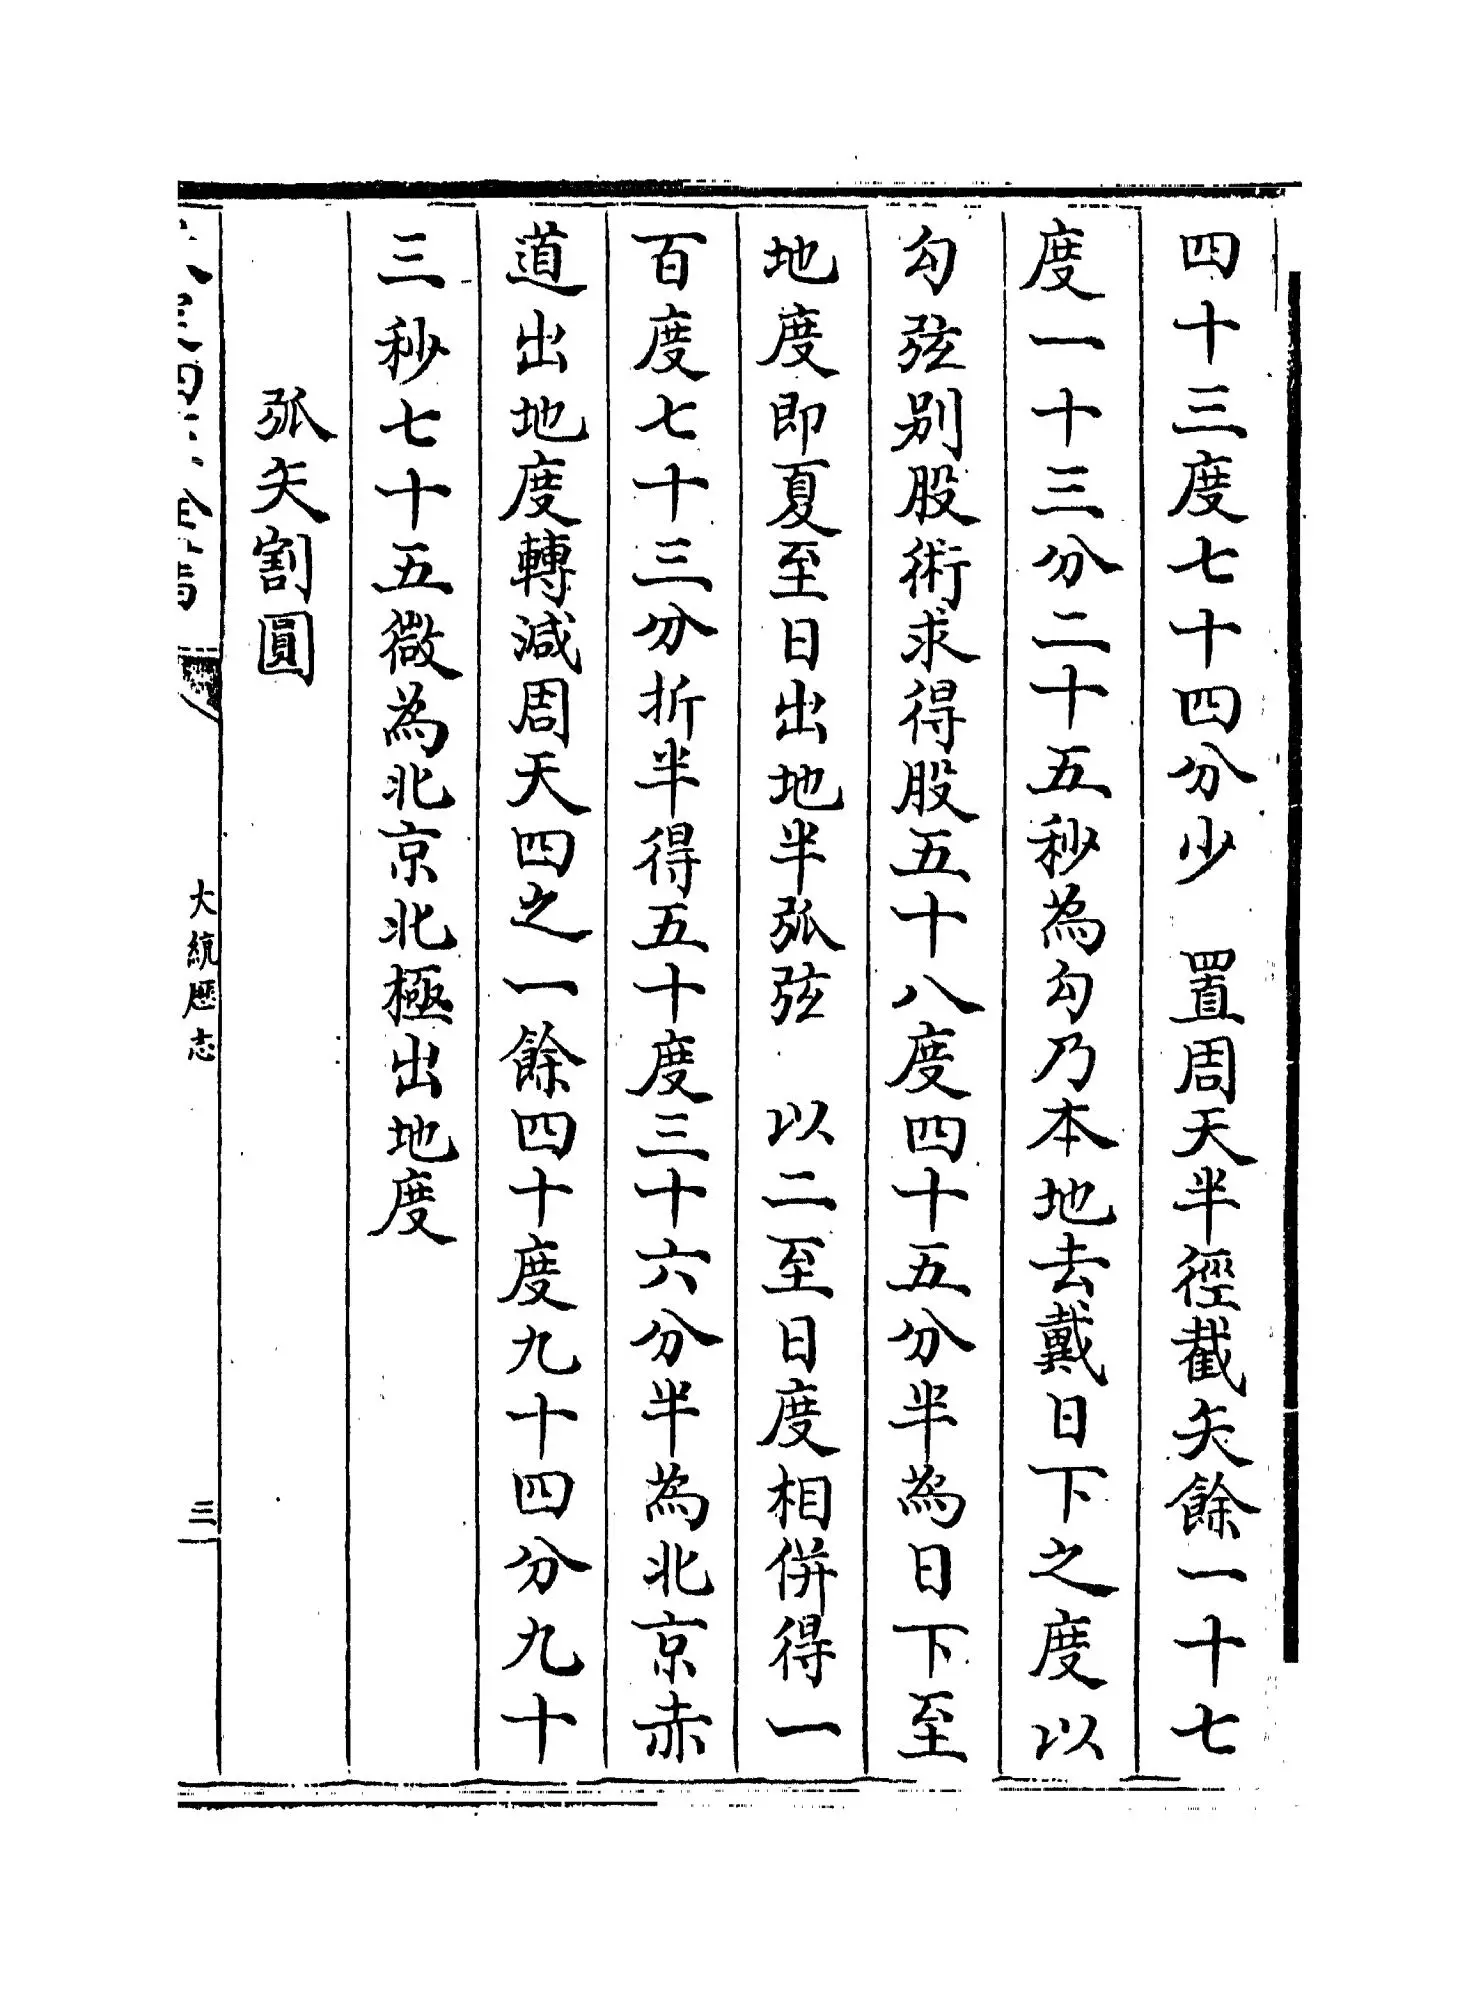 四十三度七十四分少　置周天半徑截矢餘一十七
度一十三分二十五秒為勾乃本地去戴日下之度以
勾弦别股術求得股五十八度四十五分半為日下至
地度即夏至日出地半弧弦　以二至日度相併得一
百度七十三分折半得五十度三十六分半為北京赤
道出地度轉減周天四之一餘四十度九十四分九十
三秒七十五微為北京北極出地度
弧矢割圓
大統厯志
三